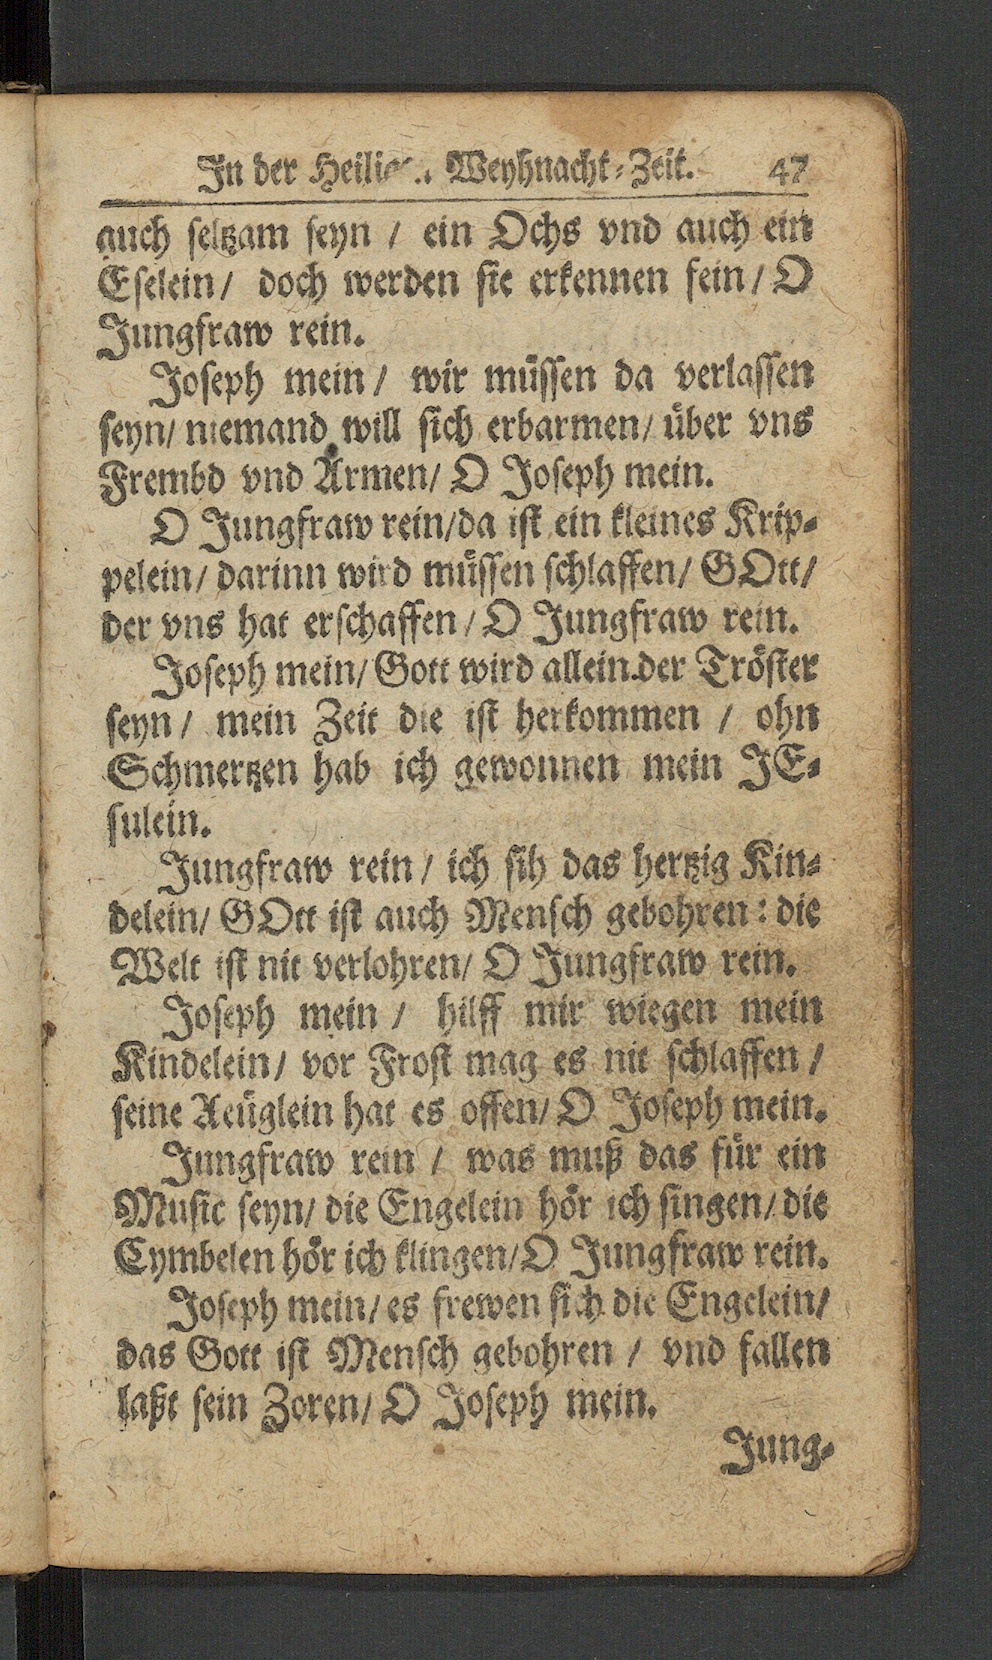 In der Heilig. Weyhnacht-Zeit. 47
auch seltzam seyn / ein Ochs vnd auch ein
Eselein / doch werden sie erkennen fein / O
Jungfraw rein.
Joseph mein / wir müssen da verlassen
seyn / niemand will sich erbarmen / über vns
Frembd vnd Armen / O Joseph mein.
O Jungfraw rein / da ist ein kleines Krip-
pelein / darinn wird müssen schlaffen / GOtt /
der vns hat erschaffen / O Jungfraw rein.
Joseph mein / Gott wird allein der Tröster
seyn / mein Zeit die ist herkommen / ohn
Schmertzen hab ich gewonnen mein JE-
sulein.
Jungfraw rein / ich sih das hertzig Kin-
delein / GOtt ist auch Mensch gebohren : die
Welt ist nit verlohren / O Jungfraw rein.
Joseph mein / hilff mir wiegen mein
Kindelein / vor Frost mag es nit schlaffen /
seine Aeüglein hat es offen / O Joseph mein.
Jungfraw rein / was muß das für ein
Music seyn / die Engelein hör ich singen / die
Cymbelen hör ich klingen / O Jungfraw rein.
Joseph mein / es frewen sich die Engelein /
das Gott ist Mensch gebohren / vnd fallen
laßt sein Zoren / O Joseph mein.
Jung-